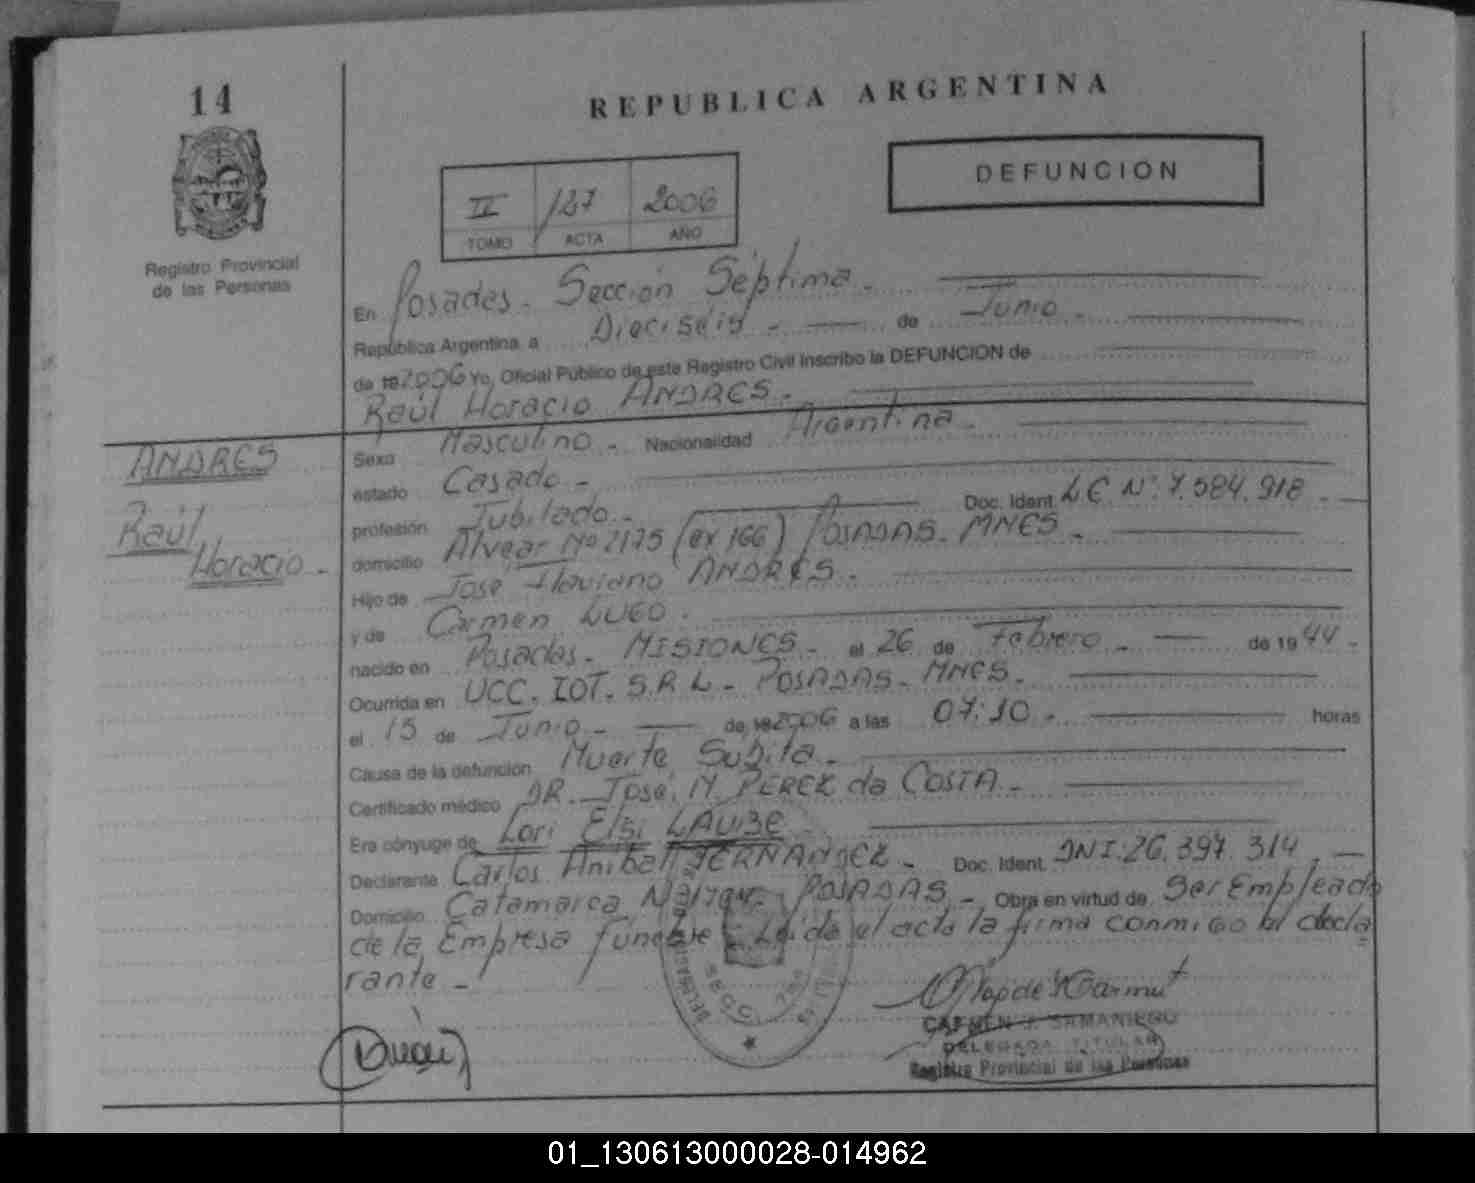 14
REPUBLICA ARGENTINA
DEFUNCION
II 127 2006
TOMO ACTA AÑO
Registro Provincial
de las Personas
En Posadas - Sección Séptima -
República Argentina a Dieciseis - de Junio -
de 19 2006 Yo, Oficial Público de este Registro Civil Inscribo la DEFUNCION de
Raúl Horacio ANDRES -
ANDRES
Raúl
Horacio -
Sexo Masculino - Nacionalidad Argentina -
estado Casado -
profesión Jubilado - Doc. Ident. L.E Nº: 7.584.918 -
domicilio Alvear Nº 2175 (ex 166) POSADAS - MNES -
Hijo de José Flaviano ANDRES -
y de Carmen LUGO -
nacido en Posadas - MISIONES - el 26 de Febrero - de 1944 -
Ocurrida en UCC. IOT. S.R.L - POSADAS - MNES -
el 15 de Junio - de 19 2006 a las 07:10 - horas
Causa de la defunción Muerte Subita -
Certificado médico DR. José M. PEREZ da COSTA -
Era cónyuge de Lori Elsi LAUBE
Declarante Carlos Anibal FERNANDEZ - Doc. Ident. DNI: 26.397.314 -
Domicilio Catamarca POSADAS - Obra en virtud de Ser Empleado
de la Empresa funebre - Leída el acta la firma conmigo el decla
rante -
CARMEN J. SAMANIEGO
DELEGADA TITULAR
Registro Provincial de las Personas
01_130613000028-014962